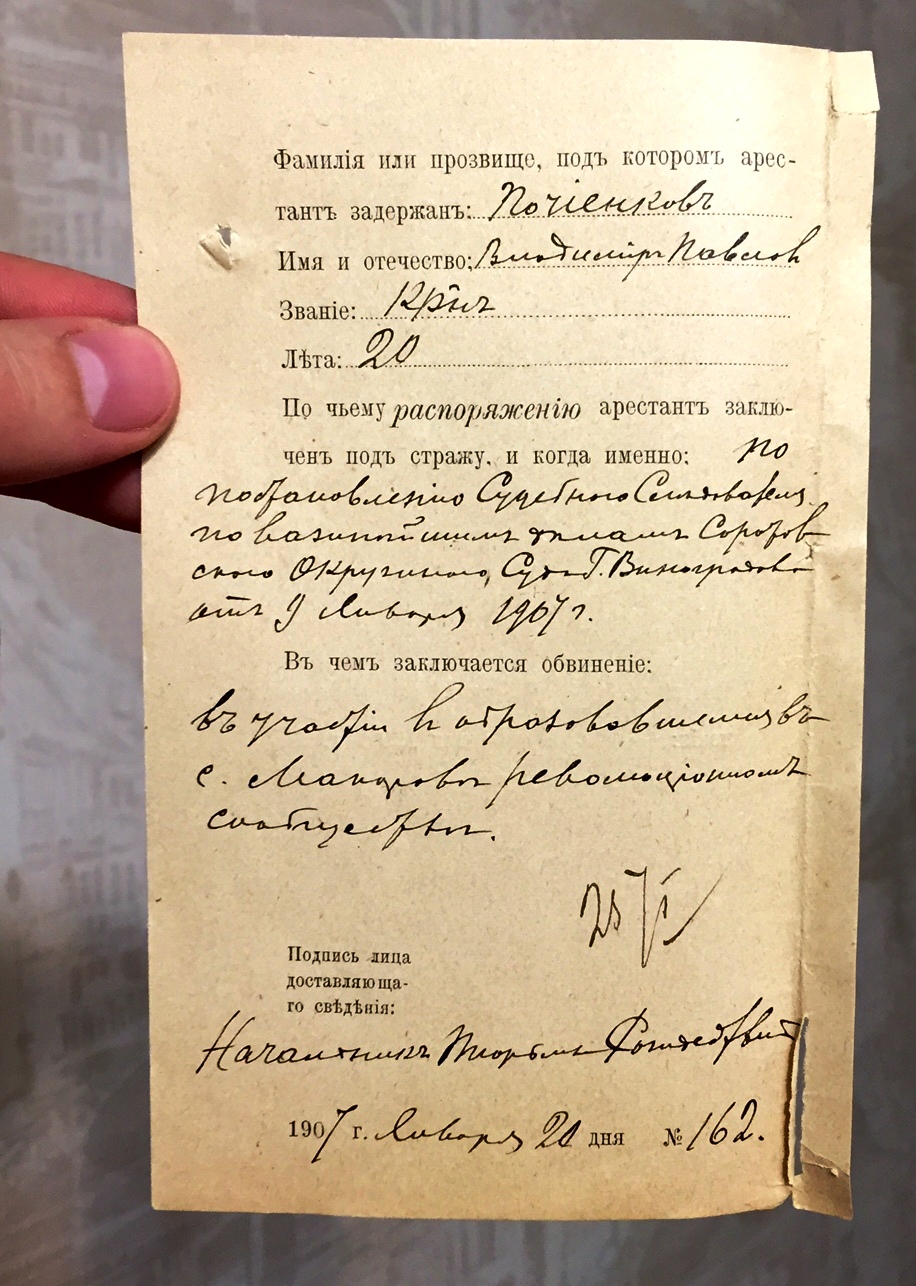 Фамилія или прозвище, подъ котормъ арес-
тантъ задержанъ:
Имя и отечество: Владиміръ Павлов
Званіе: Кр-нъ
Лѣта: 20
По чьему распоряженію арестантъ заклю-
ченъ подъ стражу, и когда именно: по
постановленію Судебного Слѣдователя
по важнѣйшимъ дѣламъ Саратов-
скаго Окружного Суда Г. Виноградова
отъ 9 Января 1907 г.
Въ чемъ заключается обвиненіе:
въ участіи въ образовавшемся въ
с. Макарово революціонномъ
сообществѣ.
25/I
Подпись лица
доставляюща-
го свѣдѣнія:
Начальникъ Тюрьмы
1907 г. Января 20 дня № 162.